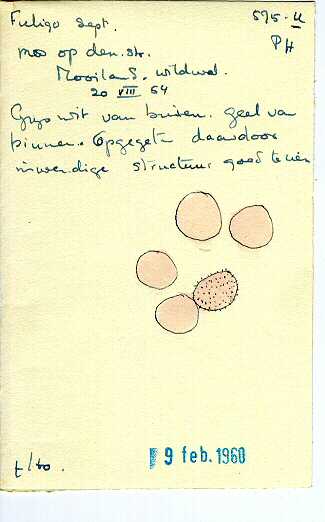 Fuligo sept.
595-U
PH
mos op den.str.
Mooiland. wildwal.
20 VIII 54
Grijs wit van buiten. geel van
binnen. Opgegeten daardoor
inwendige structuur goed te zien
t/10.
9 feb. 1960